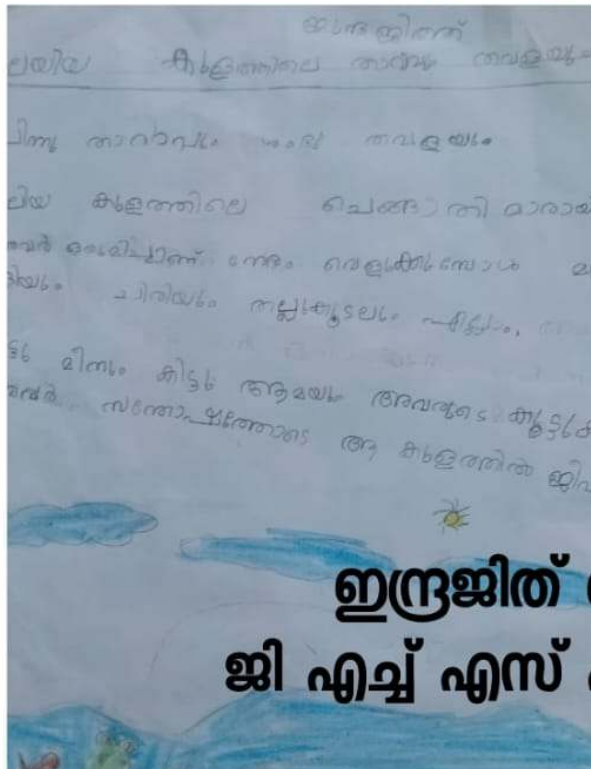 ഇന്ദ്രജിത്ത്
കുളത്തിലെ താറാവും തവളയും
മിന്നു താറാവും തവളയും
ലിയ കുളത്തിലെ ചെങ്ങാതിമാരായ
ഒരുമിച്ചാണ് നേരം വെളുക്കുമ്പോൾ
ചിരിയും തല്ലുകൂടലും എല്ലാം,
മീനും കിട്ടു ആമയും അവരുടെ
സന്തോഷത്തോടെ ആ കുളത്തിൽ ജീവ
ഇന്ദ്രജിത്
ജി എച്ച് എസ്